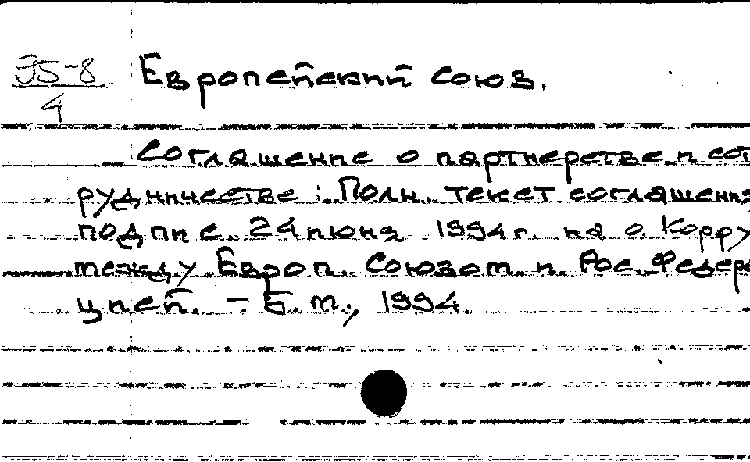 Э5-8
4
Европейский союз.
Соглашение о партнерстве и сот
рудничестве: Полн. текст соглашения
подпис. 24 июня 1994г. на о. Корфу
между Европ. Союзом и Рос. Федера
цией. – Б.м., 1994.